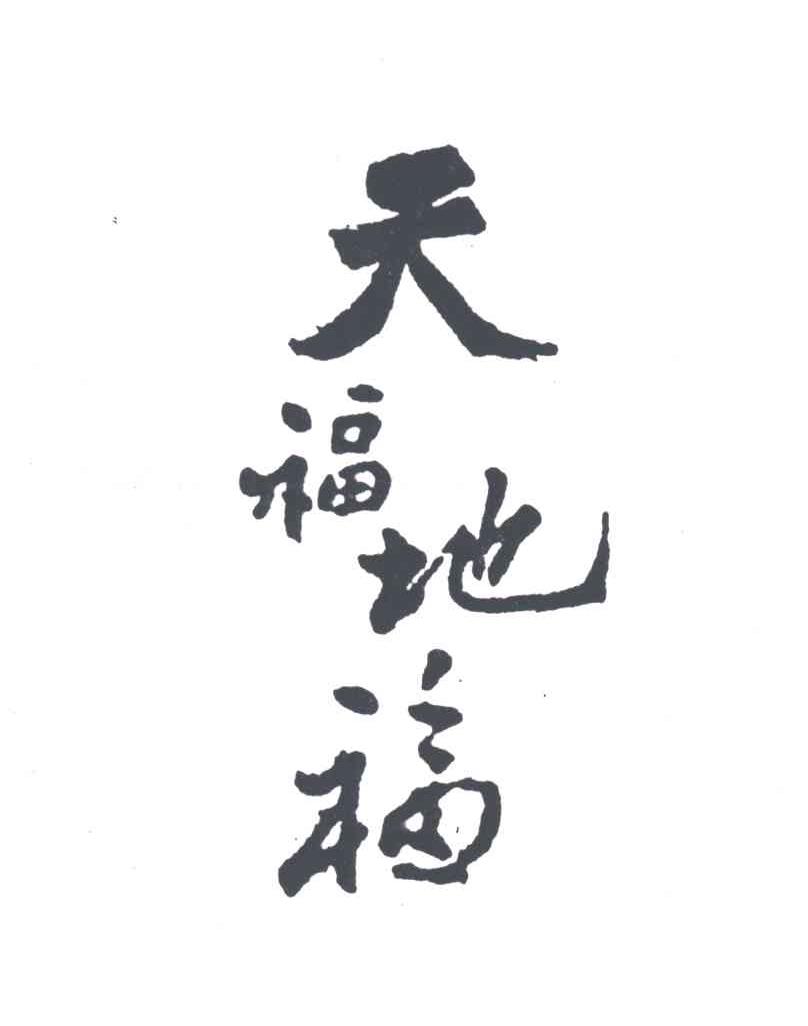 天福地福